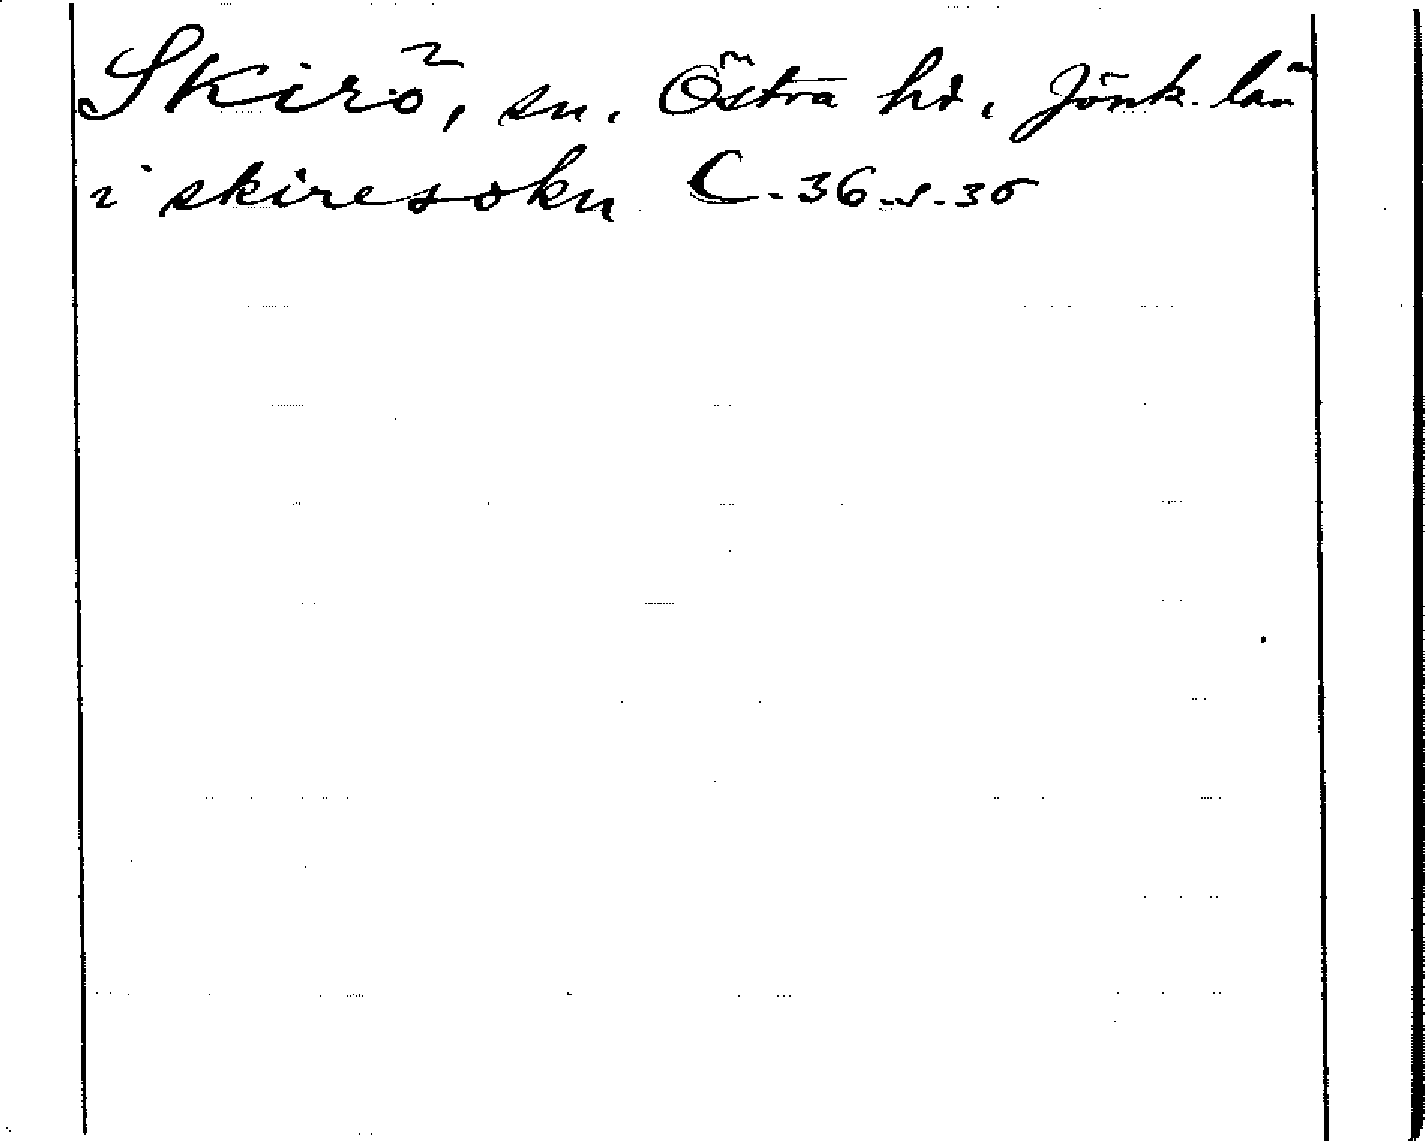 Skirö, sn. Östra hd. Jönk. län
i skiresokn C-36-s-36